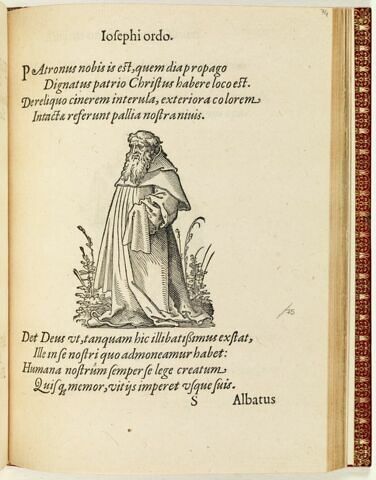 74
Iosephi ordo.
PAtronus nobis is est, quem dia propago
Dignatus patrio Christus habere loco est.
De reliquo cinerem interula, exteriora colorem
Intactæ referunt pallia nostra niuis.
75
Det Deus vt, tanquam hic illibatissimus exstat,
Ille in se nostri quo admoneamur habet:
Humana nostrûm semper se lege creatum
Quisq, memor, vitijs imperet vsque suis.
S Albatus